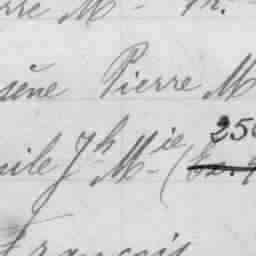 rre M - M.
sène Pierre M
mile Jh Mie - ( 250
François